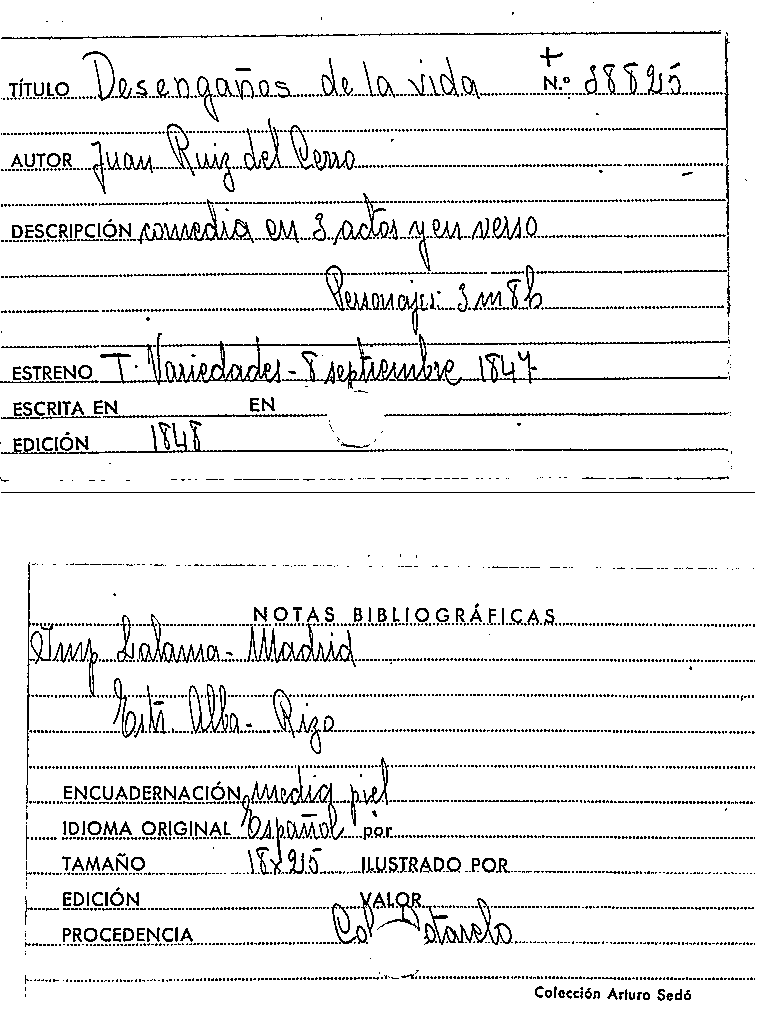 TÍTULO Desengaños de la vida + N.º 38825
AUTOR Juan Ruiz del Cerro
DESCRIPCIÓN comedia en 3 actos y en verso
Personajes: 3 m 8 h
ESTRENO T. Variedades - 8 septiembre 1847
ESCRITA EN EN
EDICIÓN 1848
NOTAS BIBLIOGRÁFICAS
Imp Lalama - Madrid
Estr. Alba - Rizo
ENCUADERNACIÓN media piel
IDIOMA ORIGINAL Español por
TAMAÑO 18 x 25 ILUSTRADO POR
EDICIÓN VALOR
PROCEDENCIA Col Cotarelo
Colección Arturo Sedó